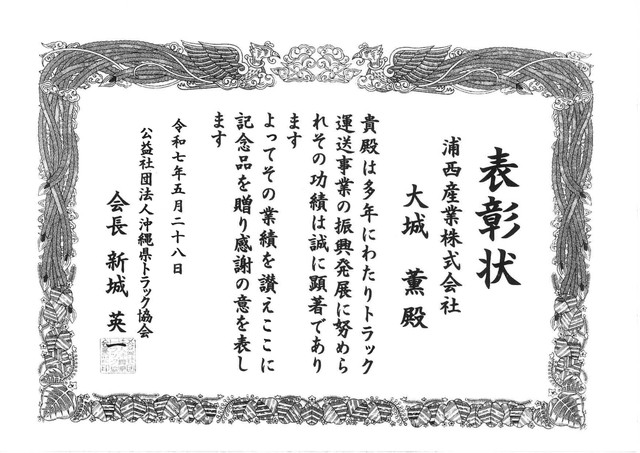 表彰状
浦西産業株式会社
大城 薫 殿
貴殿は多年にわたりトラック
運送事業の振興発展に努めら
れその功績は誠に顕著であり
ます
よってその業績を讃えここに
記念品を贈り感謝の意を表し
ます
令和七年五月二十八日
公益社団法人沖縄県トラック協会
会長 新城 英一